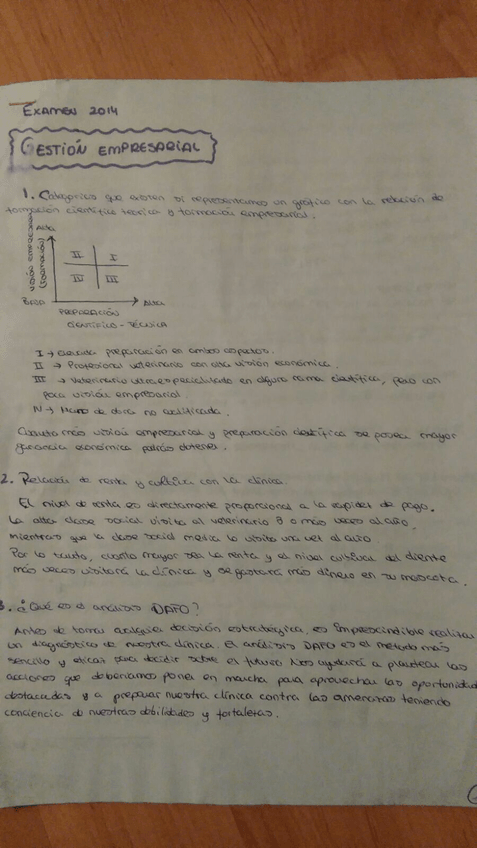 EXAMEN 2014
GESTIÓN EMPRESARIAL
1. Categorías que existen si representamos un gráfico con la relación de
formación científica teórica y formación empresarial.
Alta
VISIÓN EMPRESARIAL
(FORMACIÓN)
II I
IV III
BAJA Alta
PREPARACIÓN
CIENTÍFICO - TÉCNICA
I → Elevada preparación en ambos aspectos.
II → Profesional veterinario con alta visión económica.
III → Veterinario ultraespecializado en alguna rama científica, pero con
poca visión empresarial.
IV → Mano de obra no cualificada.
Cuanto más visión empresarial y preparación científica se posea mayor
ganancia económica podrás obtener.
2. Relación de renta y cultura con la clínica.
El nivel de renta es directamente proporcional a la rapidez de pago.
La alta clase social visita al veterinario 3 o más veces al año,
mientras que la clase social media lo visita una vez al año.
Por lo tanto, cuanto mayor sea la renta y el nivel cultural del cliente
más veces visitará la clínica y se gastará más dinero en su mascota.
3. ¿Qué es el análisis DAFO?
Antes de tomar cualquier decisión estratégica, es imprescindible realizar
un diagnóstico de nuestra clínica. El análisis DAFO es el método más
sencillo y eficaz para decidir sobre el futuro. Nos ayudará a plantear las
acciones que deberíamos poner en marcha para aprovechar las oportunidad
destacadas y a preparar nuestra clínica contra las amenazas teniendo
conciencia de nuestras debilidades y fortalezas.